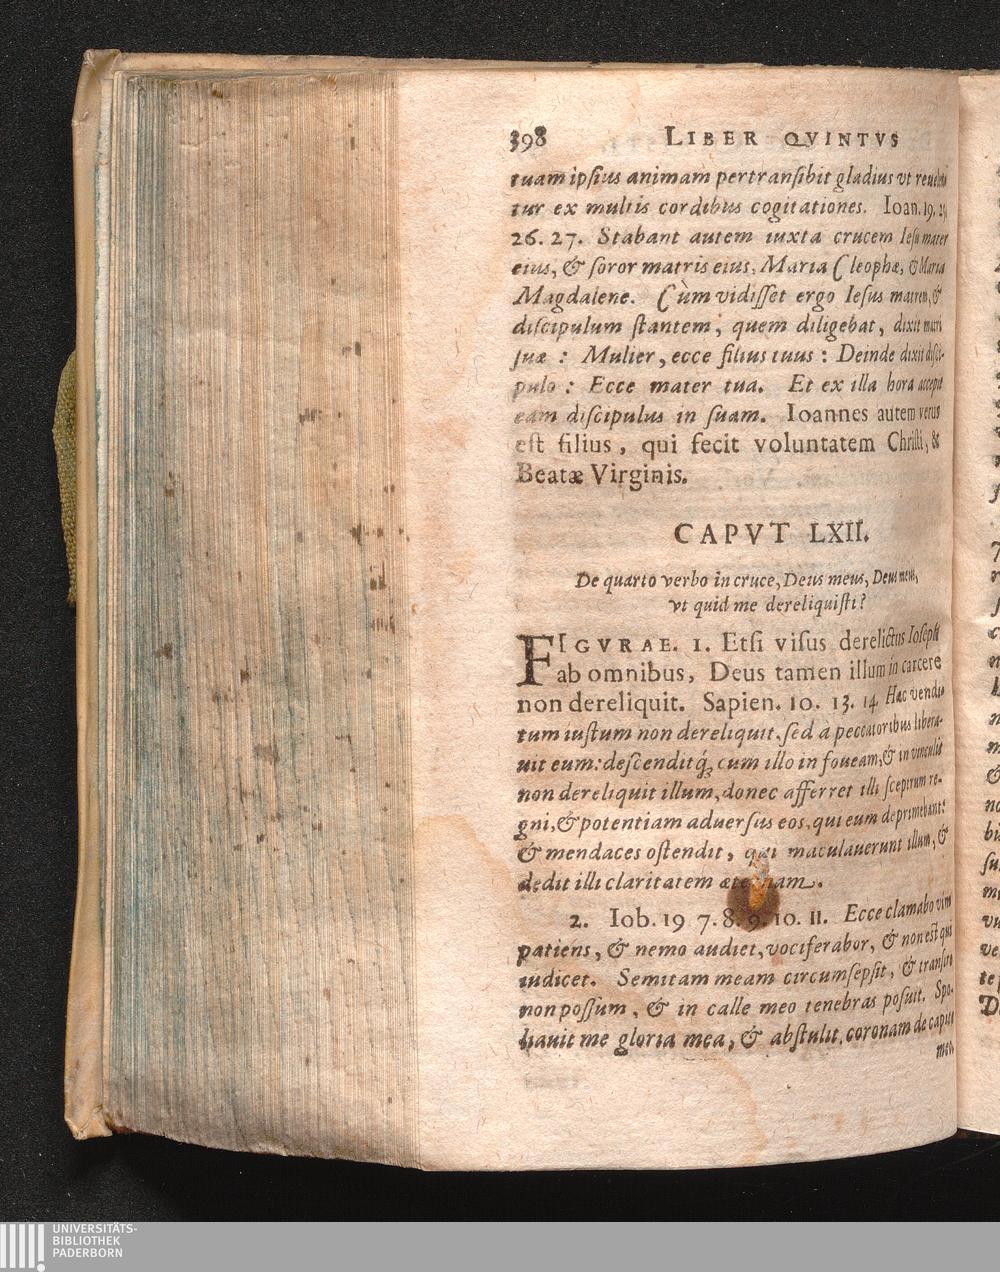 398 LIBER QVINTVS
tuam ipsius animam pertransibit gladius vt
tur ex multis cordibus cogitationes. Ioan. 19. 25
26. 27. Stabant autem iuxta crucem Iesu mater
eius, & soror matris eius, Maria Cleophæ, & Maria
Magdalene. Cùm vidisset ergo Iesus matrem, &
discipulum stantem, quem diligebat, dixit matri
suæ : Mulier, ecce filius tuus : Deinde dixit disci-
pulo : Ecce mater tua. Et ex illa hora accepit
eam discipulus in suam. Ioannes autem verus
est filius, qui fecit voluntatem Christi, &
Beatæ Virginis.
CAPVT LXII.
De quarto verbo in cruce, Deus meus, Deus meus,
vt quid me dereliquisti?
FIGVRAE. 1. Etsi visus derelictus Ioseph
ab omnibus, Deus tamen illum in carcere
non dereliquit. Sapien. 10. 13. 14. Hæc vendi-
tum iustum non dereliquit, sed à peccatoribus libera-
uit eum: descenditq́; cum illo in foueam, & in vinculis
non dereliquit illum, donec afferret illi sceptrum re-
gni, & potentiam aduersus eos, qui eum deprimebant:
& mendaces ostendit, qui maculauerunt illum, &
dedit illi claritatem æternam.
2. Iob. 19 7. 8. 9. 10. 11. Ecce clamabo vim
patiens, & nemo audiet, vociferabor, & non est qui
iudicet. Semitam meam circumsepsit, & transire
non possum, & in calle meo tenebras posuit. Spo-
liauit me gloria mea, & abstulit coronam de capite
meo.
UNIVERSITÄTS-
BIBLIOTHEK
PADERBORN